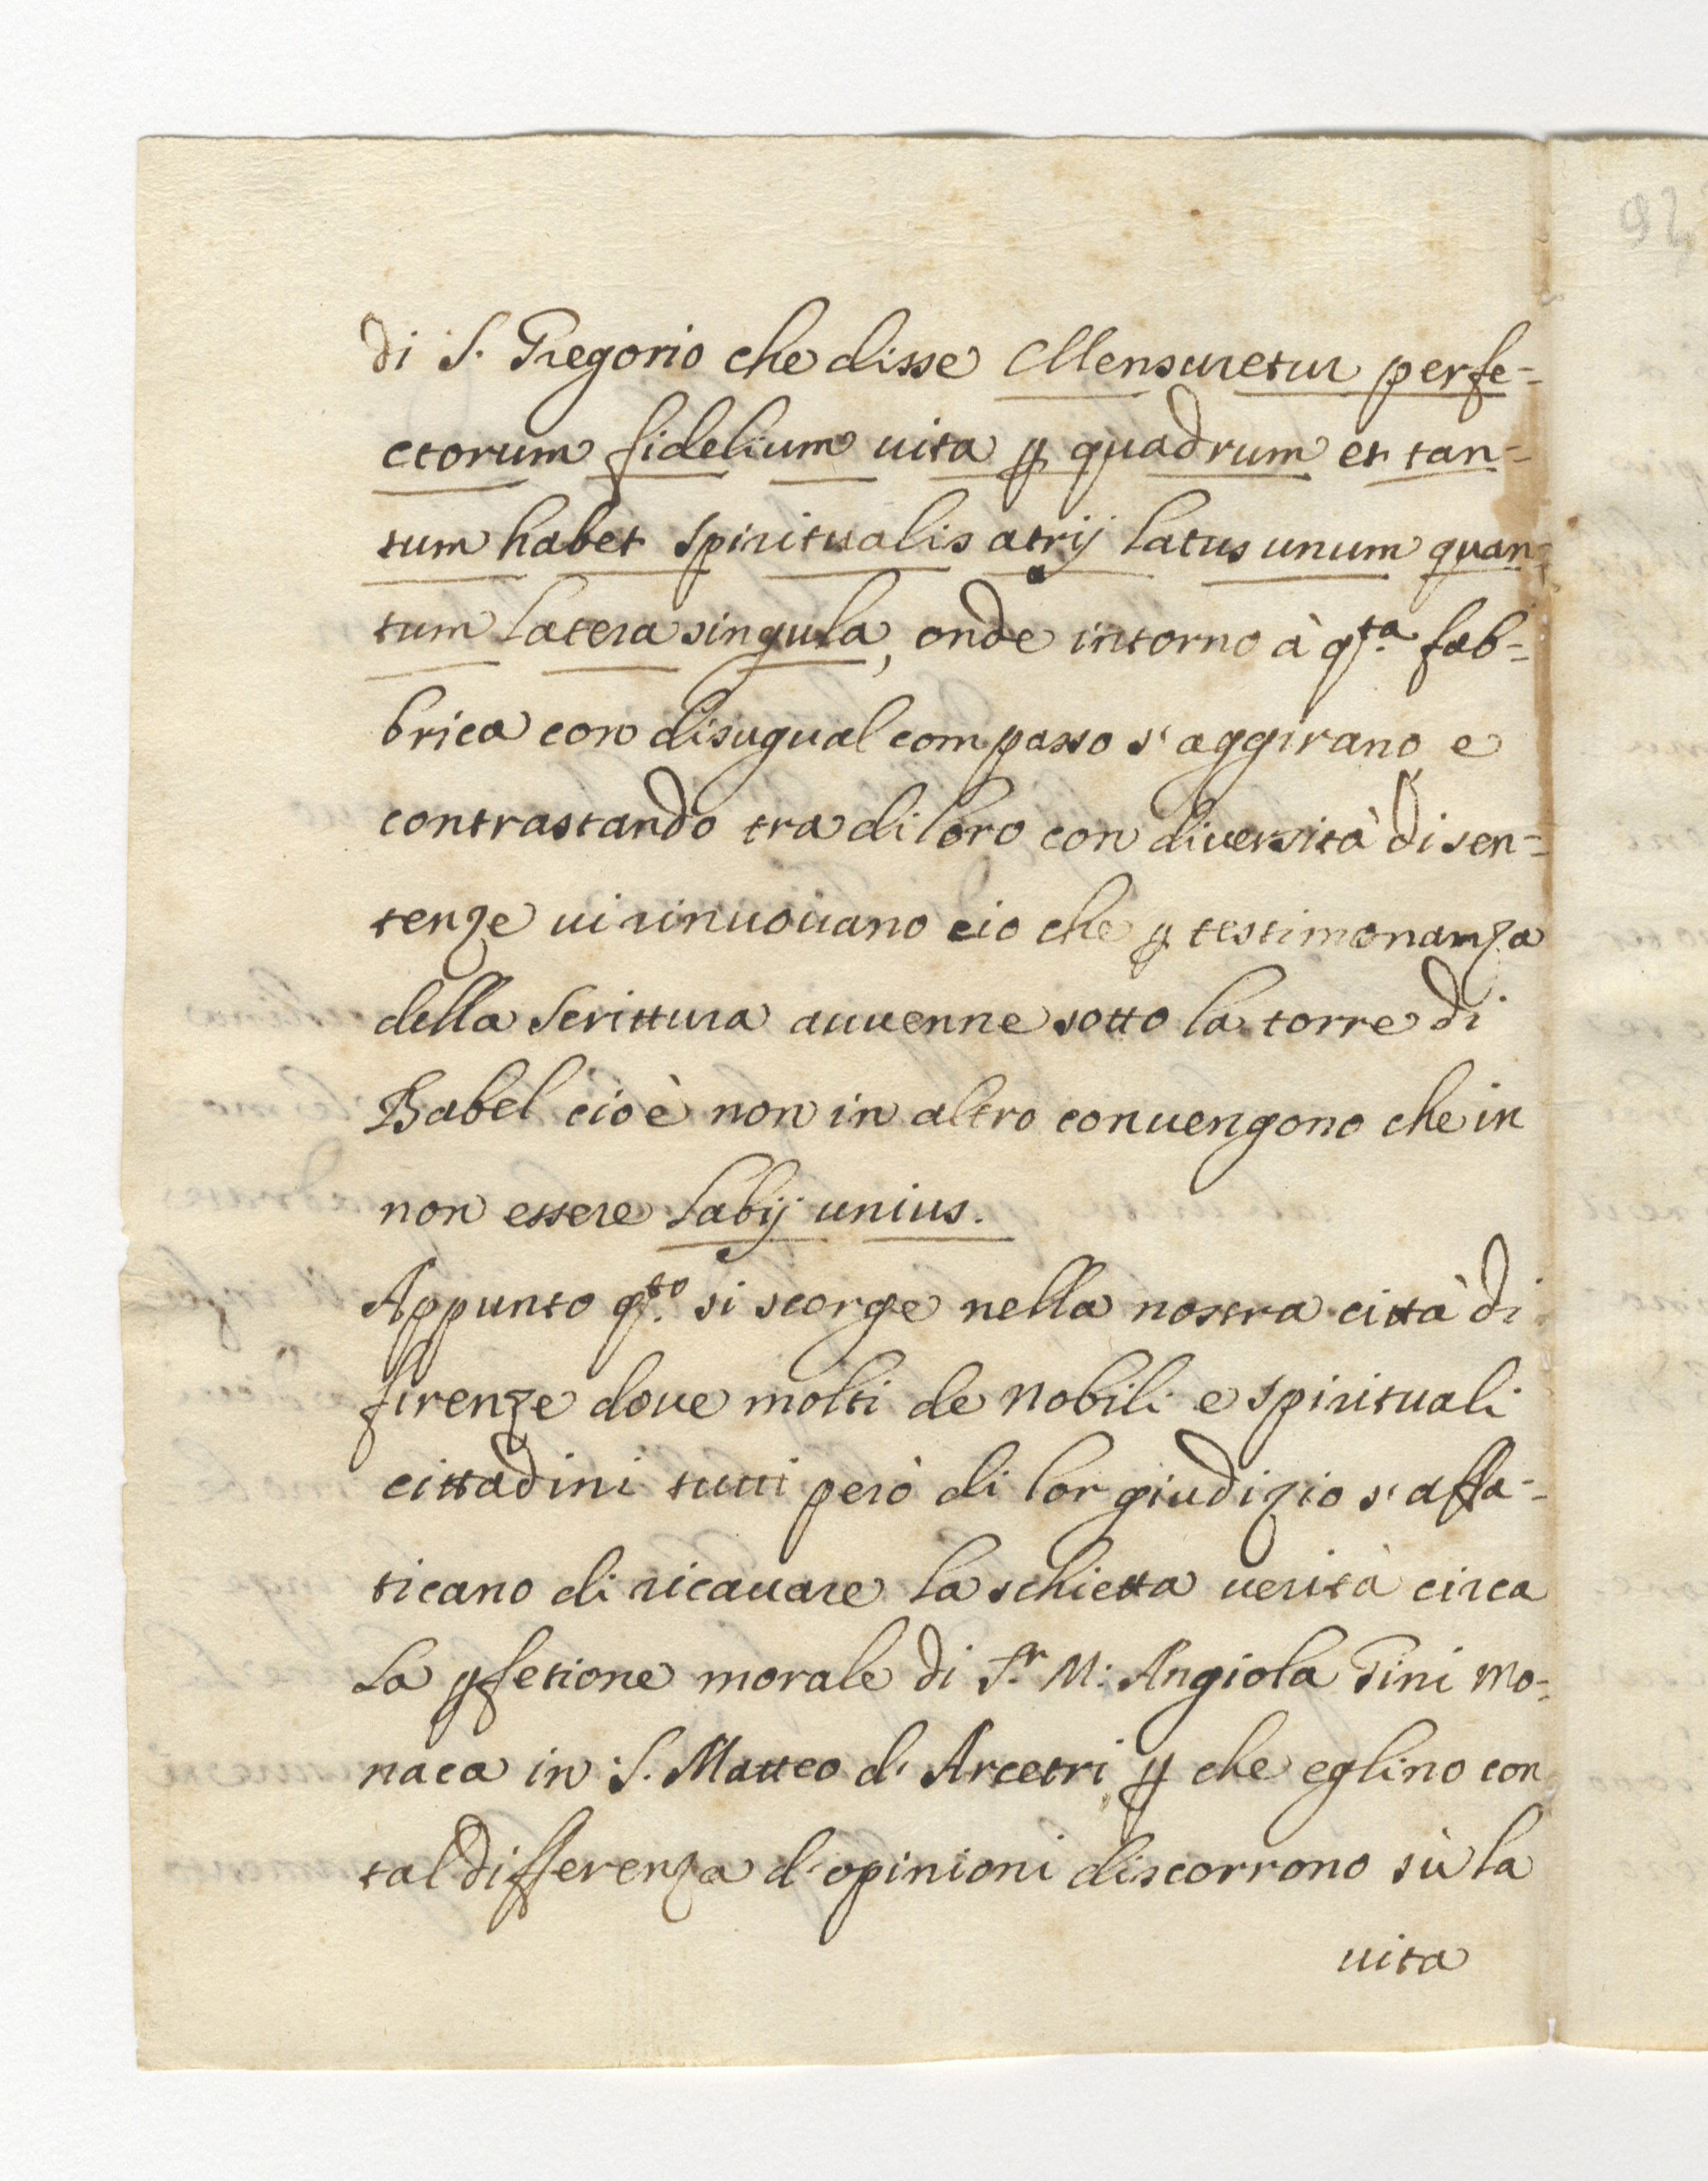 di S. Gregorio che disse Mensuretur perfe=
ctorum fidelium uita ꝑ quadrum et tan=
tum habet spiritualis atrij latus unum quan=
tum latera singula, onde intorno à q.ta fab=
brica con disugual compasso s'aggirano e
contrastando tra di loro con diuersità di sen=
tenze ui rinuouano cio che ꝑ testimonanza
della Scrittura auuenne sotto la torre di
Babel cioè non in altro conuengono che in
non essere labij unius.
Appunto q.to si scorge nella nostra città di
firenze doue molti de nobili e spirituali
cittadini tutti però di lor giudizio s'affa=
ticano di ricauare la schietta uerità circa
la ꝑfetione morale di S.r M: Angiola Pini mo=
naca in S. Matteo d'Arcetri ꝑ che eglino con
tal differenza d'opinioni discorrono sù la
uita